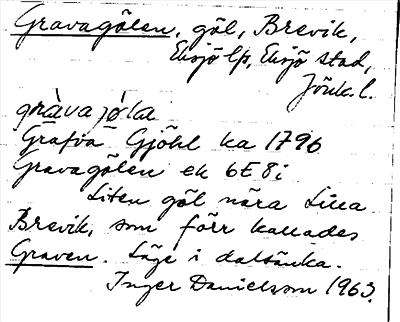 Gravagölen, göl, Brevik,
Eksjö lfs, Eksjö stad,
Jönk. l.
gràvajø̀la
Grafva Gjöhl ka 1796
Gravagölen ek 6E 8i
Liten göl nära Lilla
Brevik, som förr kallades
Graven. Läge i dalsänka.
Inger Danielsson 1963.